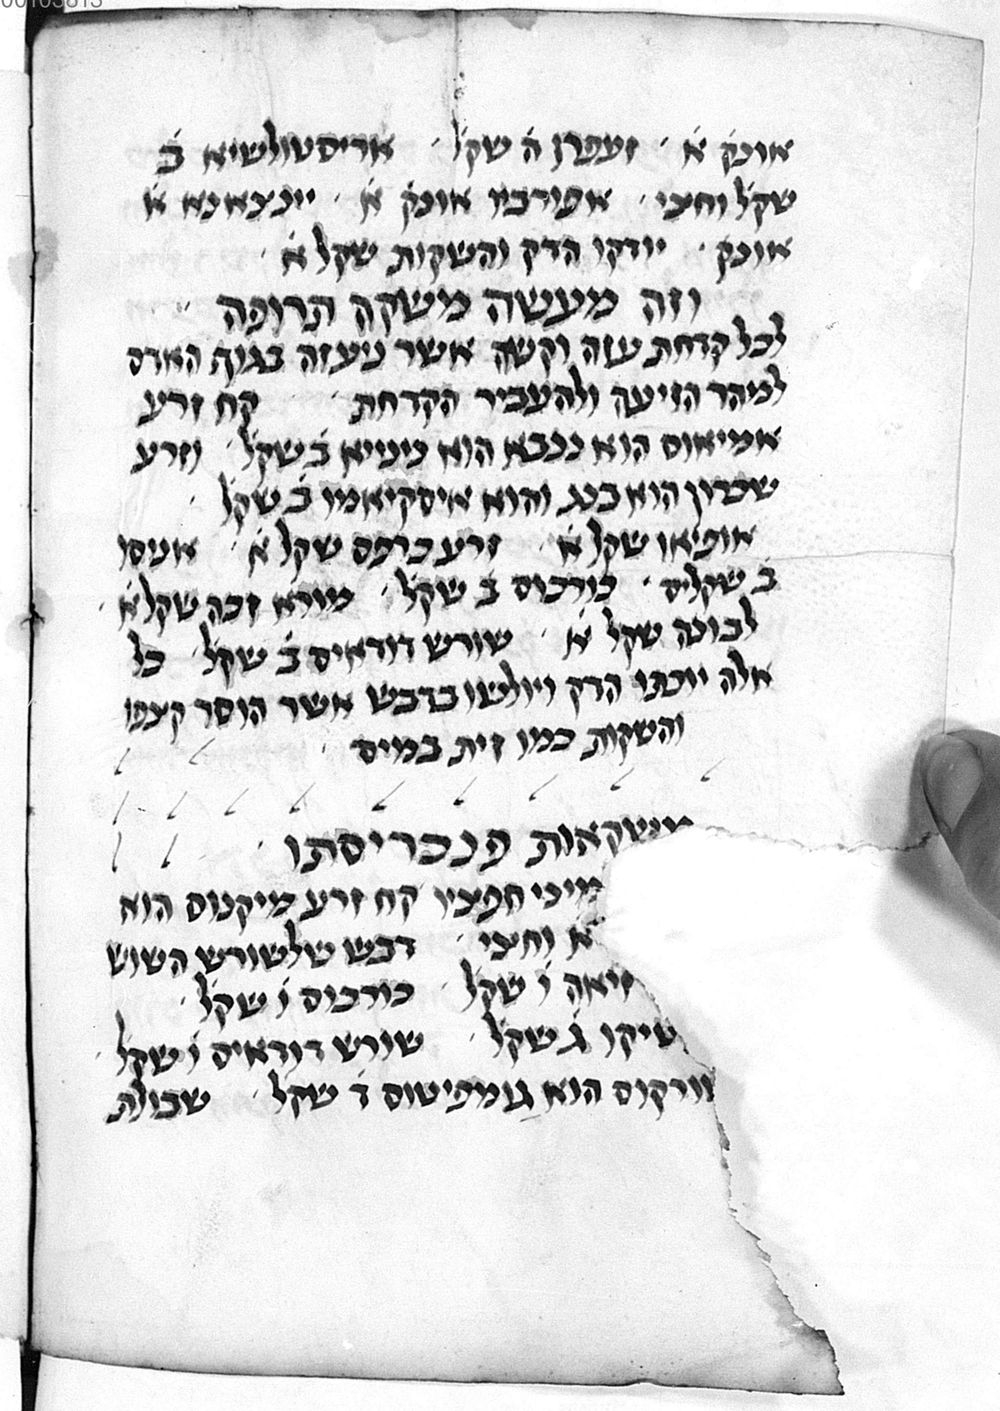 אונק̇ א̇ · זעפרן ה̇ שקל̇ · אריסטולשיא ב̇
שקל̇ וחצי · אפורביו אונק̇ א̇ · יינצאנא א̇
אונק̇ · יודקו הדק והשקות שקל א̇ ·
וזה מעשה משקה תרופה
לכל קדחת עזה וקשה אשר ניעזה בגוף האדם
למהר הזיעה ולהעביר הקדחת · קח זרע
אמיאוס הוא ננכא הוא נינייא ב̇ שקל̇ וזרע
שכרון הוא בנג והוא איסקיאמו ב̇ שקל̇ ·
אופיאו שקל א̇ · זרע כרפס שקל א̇ · אניסו
ב̇ שקלים · כורכוס ב̇ שקל̇ · מורא זכה שקל א̇ ·
לבונה שקל א̇ · שורש דודאים ב̇ שקל̇ כל
אלה יוכתו הדק ויולשו בדבש אשר הוסר קצפו
והשקות כמו זית במים
משקאות פנכריסתו
מיני חפציו קח זרע מיקנוס הוא
א̇ וחצי · דבש שלשורש השוש
זיאה ו̇ שקל̇ כורכוס ו̇ שקל̇ ·
שיקו ג̇ שקל̇ · שורש דודאים ו̇ שקל̇ ·
וורקוס הוא גומפיטוס ד̇ שקל̇ שבולת